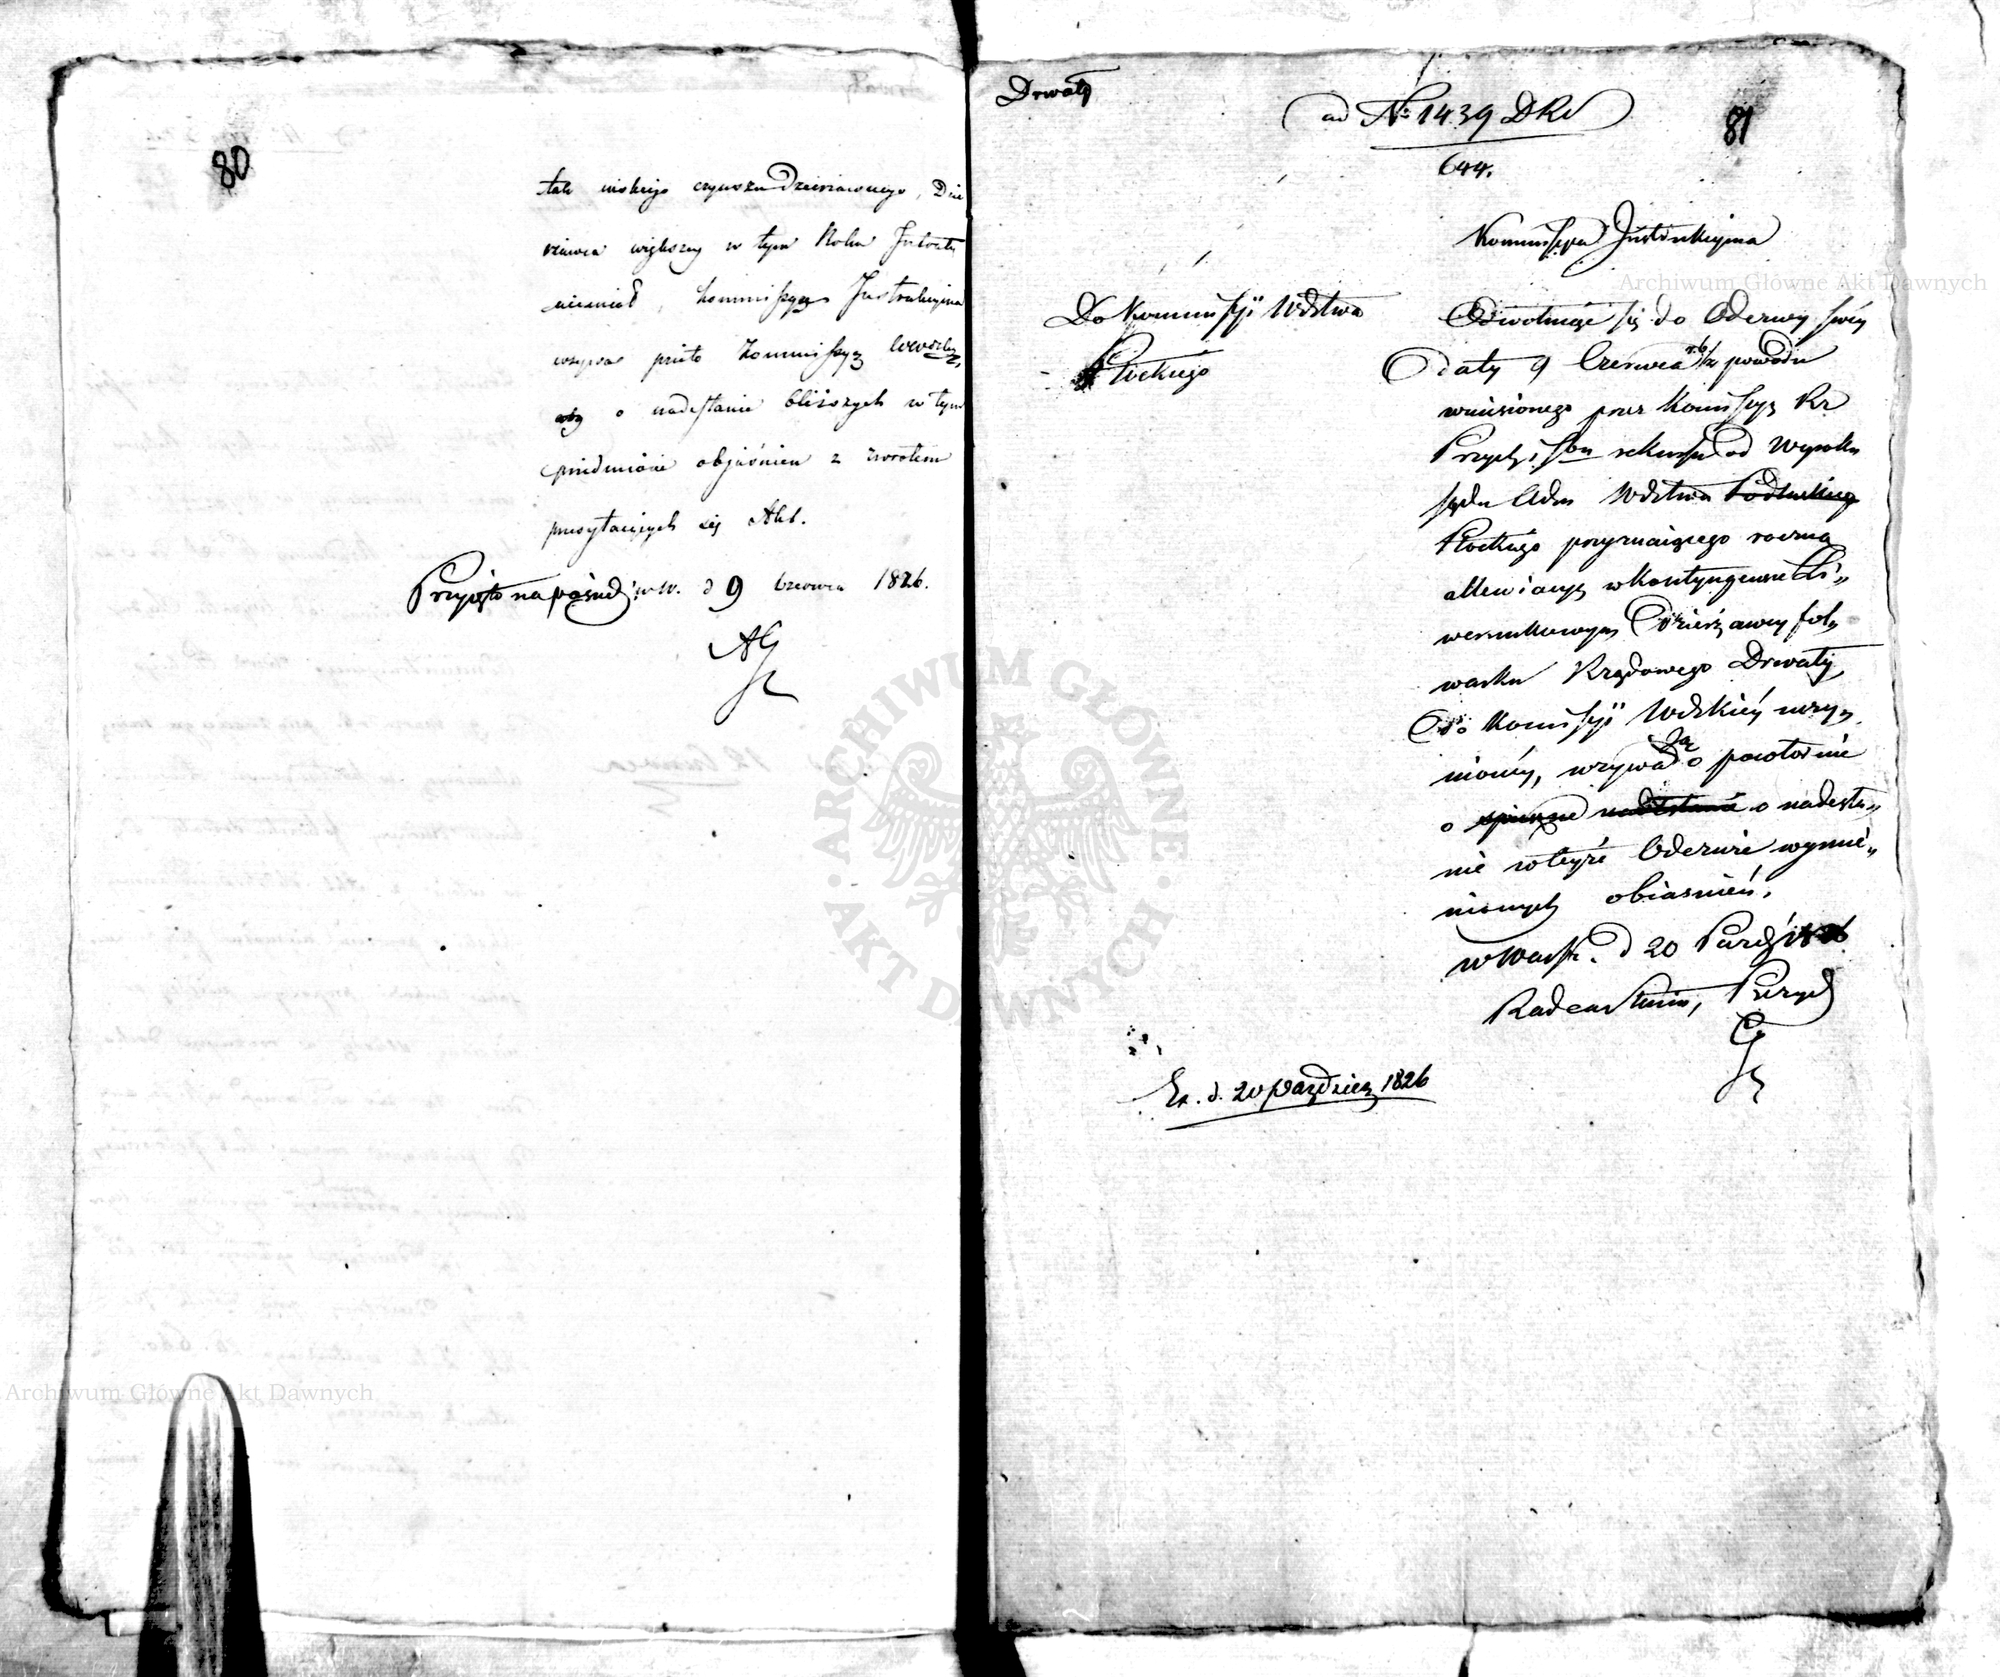 80
tak niskiego czynszu dzierżawnego, Dzie
rżawca większey w tym Roku Intraty
niemiał, Kommissya Instrukcyina
wzywa przeto Kommissyą Woiewódz,
o nadesłanie bliższych w tym
przedmiocie objaśnień z zwrotem
przesyłaiących się Akt.
Przyięto na posiedz: w W. d 9 Czerwca 1826.
Drwały
ad № 1439 DRV
644.
81
Kommissya Instrukcyina
Do Kommissyi Wdztwa
Płockiego
Odwołuiąc się do Odezwy swéy
Daty 9 Czerwca r. b. z powodu
wniesionego przez Komissyą Rz
Przych: i Skar rekursu od Wyroku
Sądu Adm Wdztwa Podlaskiego
Płockiego przyznaiącego roczną
allewiacyą w kontyngensie Li„
werunkowym Dzierżawcy fol„
warku Rządowego Drwały,
Do Komissyi Wdzkiéy uczy„
nionéy, wzywa Ją powtórnie
o nadesła„
nie w teyże Odezwie wymie„
nionych obiasnień.
w Warsz. d 20 Paźdź 1826
Radca Stanu, Prezyd
Ex. d. 20 Paździer 1826
Archiwum Główne Akt Dawnych
ARCHIWUM GŁÓWNE
AKT DAWNYCH
Archiwum Główne Akt Dawnych